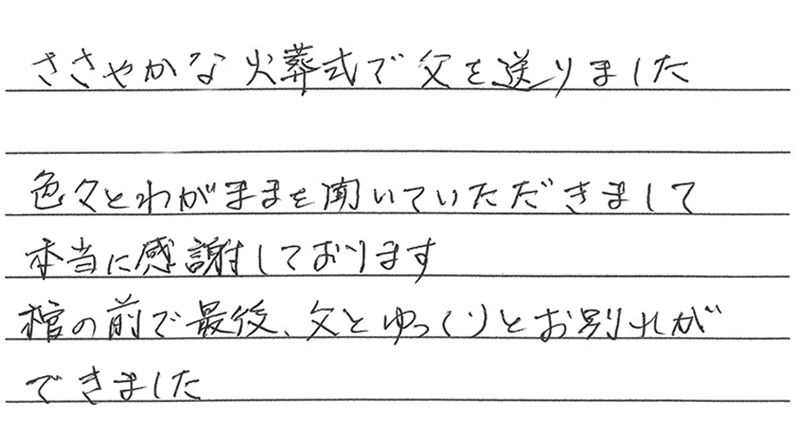 ささやかな火葬式で父を送りました
色々とわがままを聞いていただきまして
本当に感謝しております
棺の前で最後、父とゆっくりとお別れが
できました